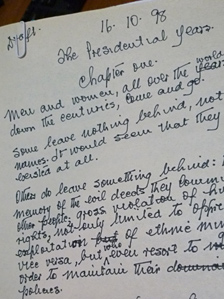 Draft
16.10.98
The Presidential Years.
Chapter one.
Men and women, all over the world
down the centuries, come and go.
Some leave nothing behind, not
names. It would seem that they
existed at all.
Others do leave something behind:
memory of the evil deeds they
other people; gross violation of
rights, not only limited to
exploitation of ethnic
vice versa, but who even resort to
order to maintain their
policies.